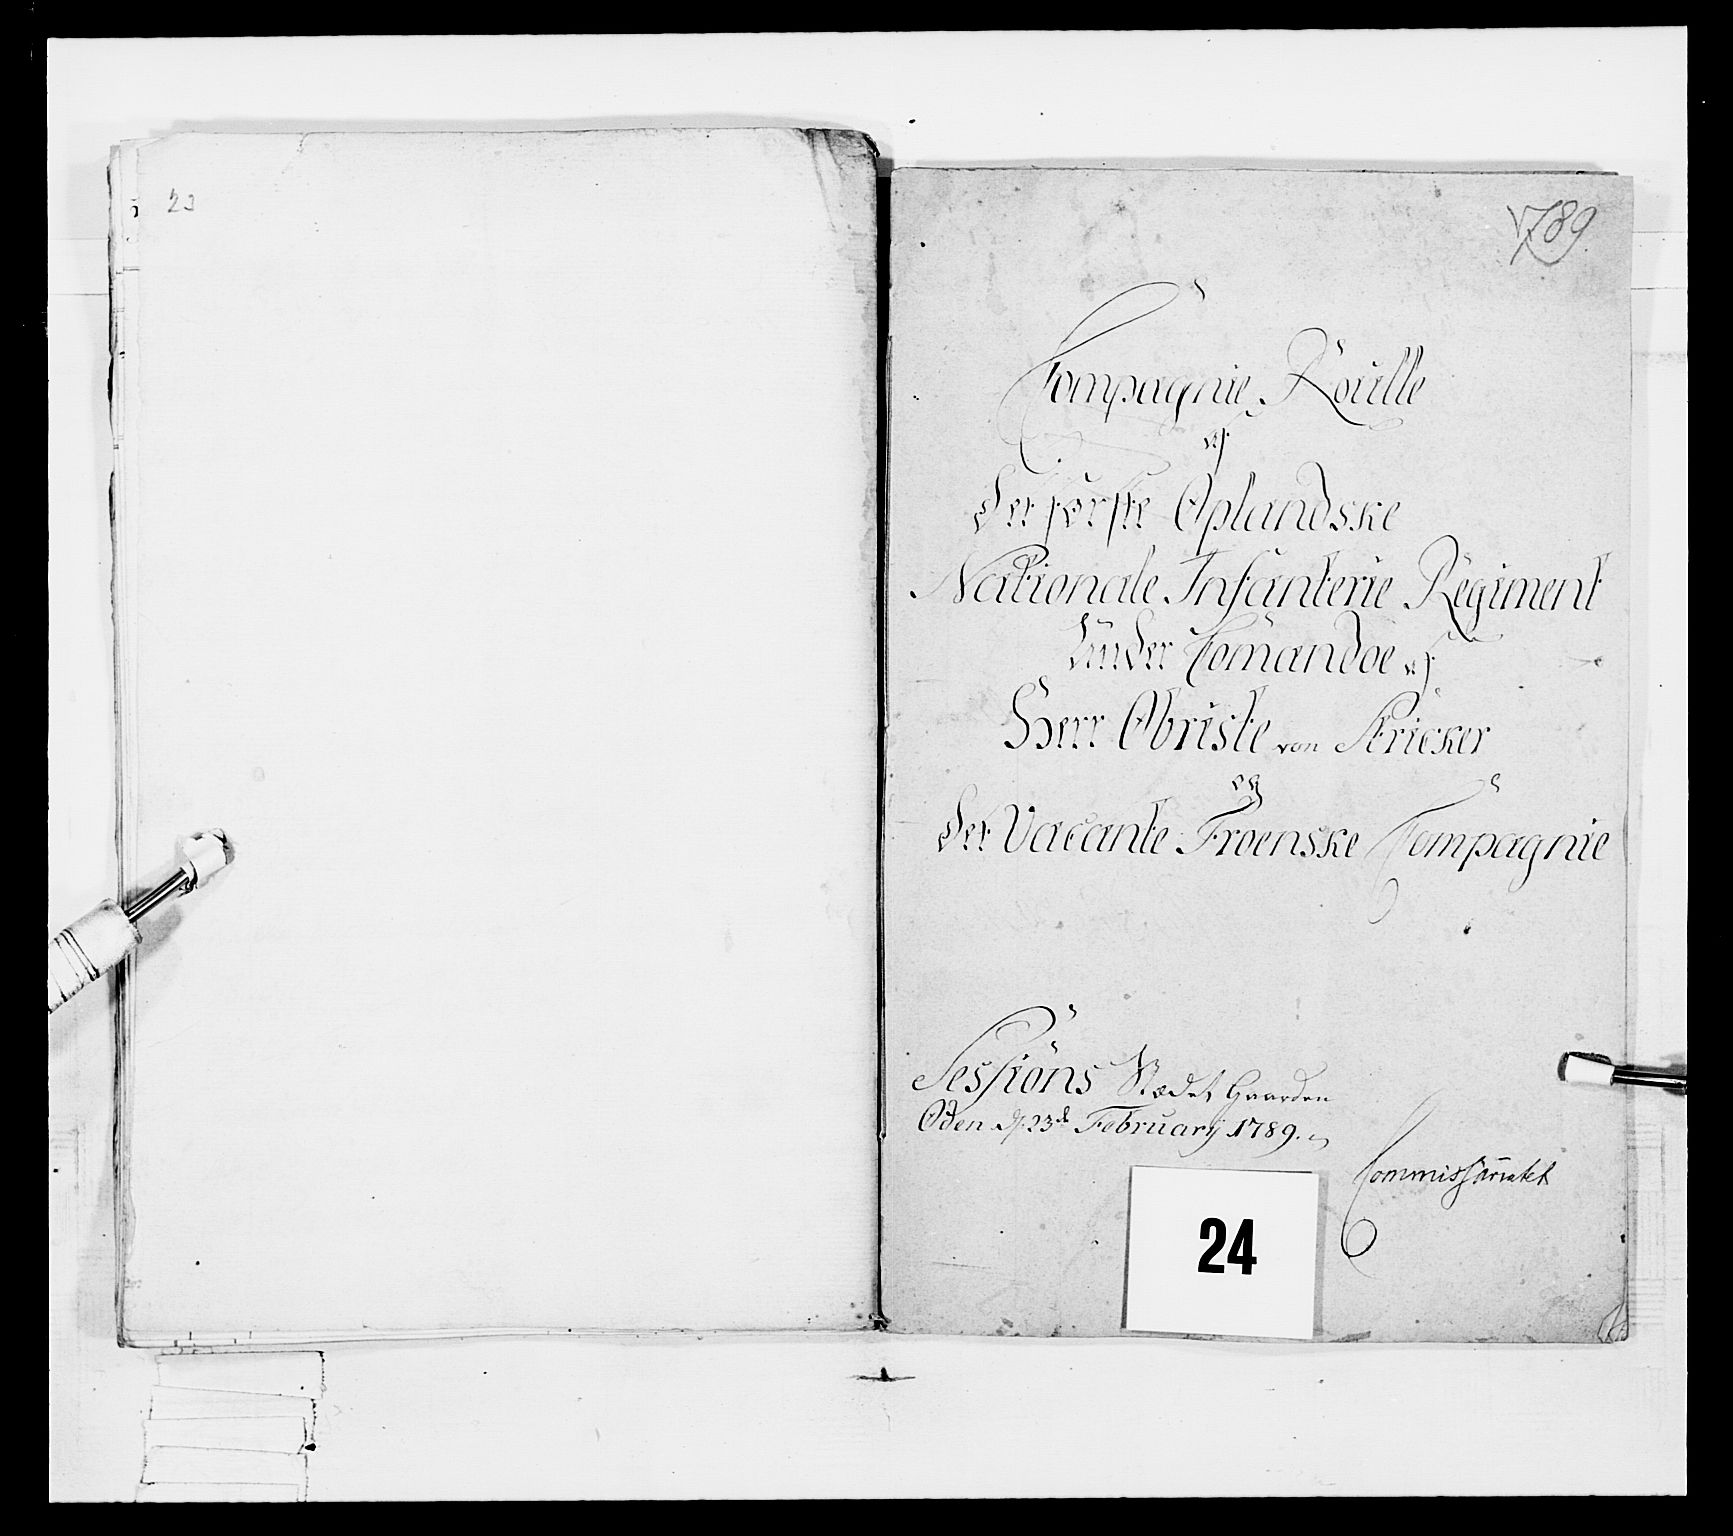 23
1789
Compagnie Roulle
af
Det første Oplandske
Nationale Infanterie Regiment
Under Comandoe af
Herr Obriste von Stricker
og
Det Vacante Froenske Compagnie
Sessions Stædet Gaarden
Oden d. 23d February 1789.
Commissariatet
24